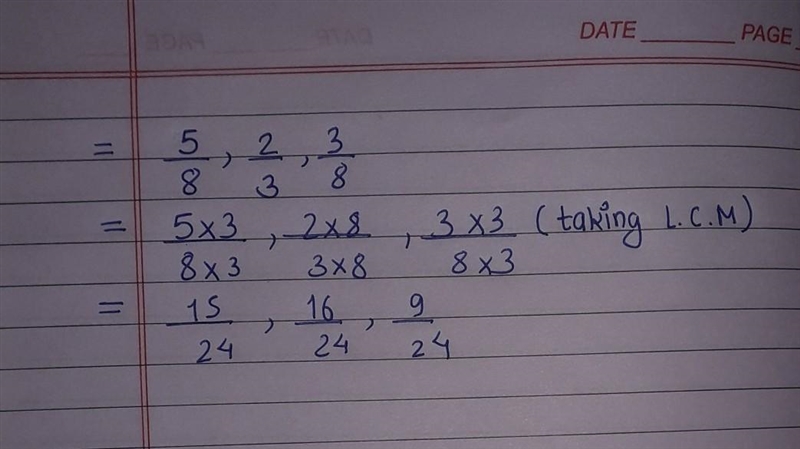 DATE ________ PAGE
= 5/8, 2/3, 3/8
= 5×3/8×3, 2×8/3×8, 3×3/8×3 (taking L.C.M)
= 15/24, 16/24, 9/24